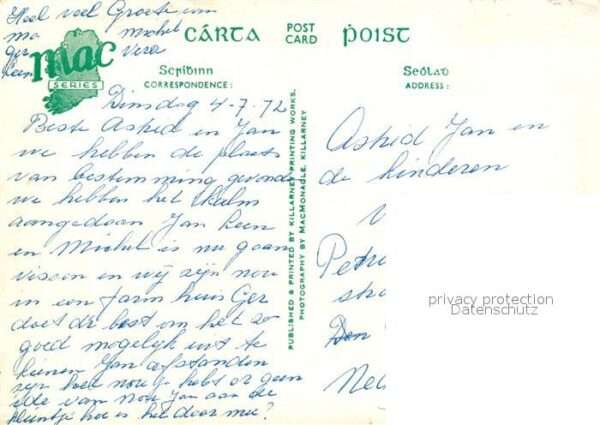 Heel veel Groeten van
Michel
ger Vera
mac
SERIES
CÁRTA POST CARD ṖOIST
Scríḃinn
CORRESPONDENCE:
Seólaḋ
ADDRESS:
Dinsdag 4-7-72
Beste Astrid en Jan
we hebben de plaats
van bestemming gevonden
we hebben het kalm
aangedaan Jan Leen
en Michel is nu gaan
vissen en wij zijn nou
in een farm huis Ger
doet dr best om het zo
goed mogelijk uit te
kienen Jan afstanden
zijn hoel nou je hebt er geen
idee van nou Jan aan de
kleintje hoe is het daar mee?
PUBLISHED & PRINTED BY KILLARNEY PRINTING WORKS.
PHOTOGRAPHY BY MACMONAGLE, KILLARNEY
Astrid Jan en
de kinderen
Petr
str
Den
Ned
privacy protection
Datenschutz